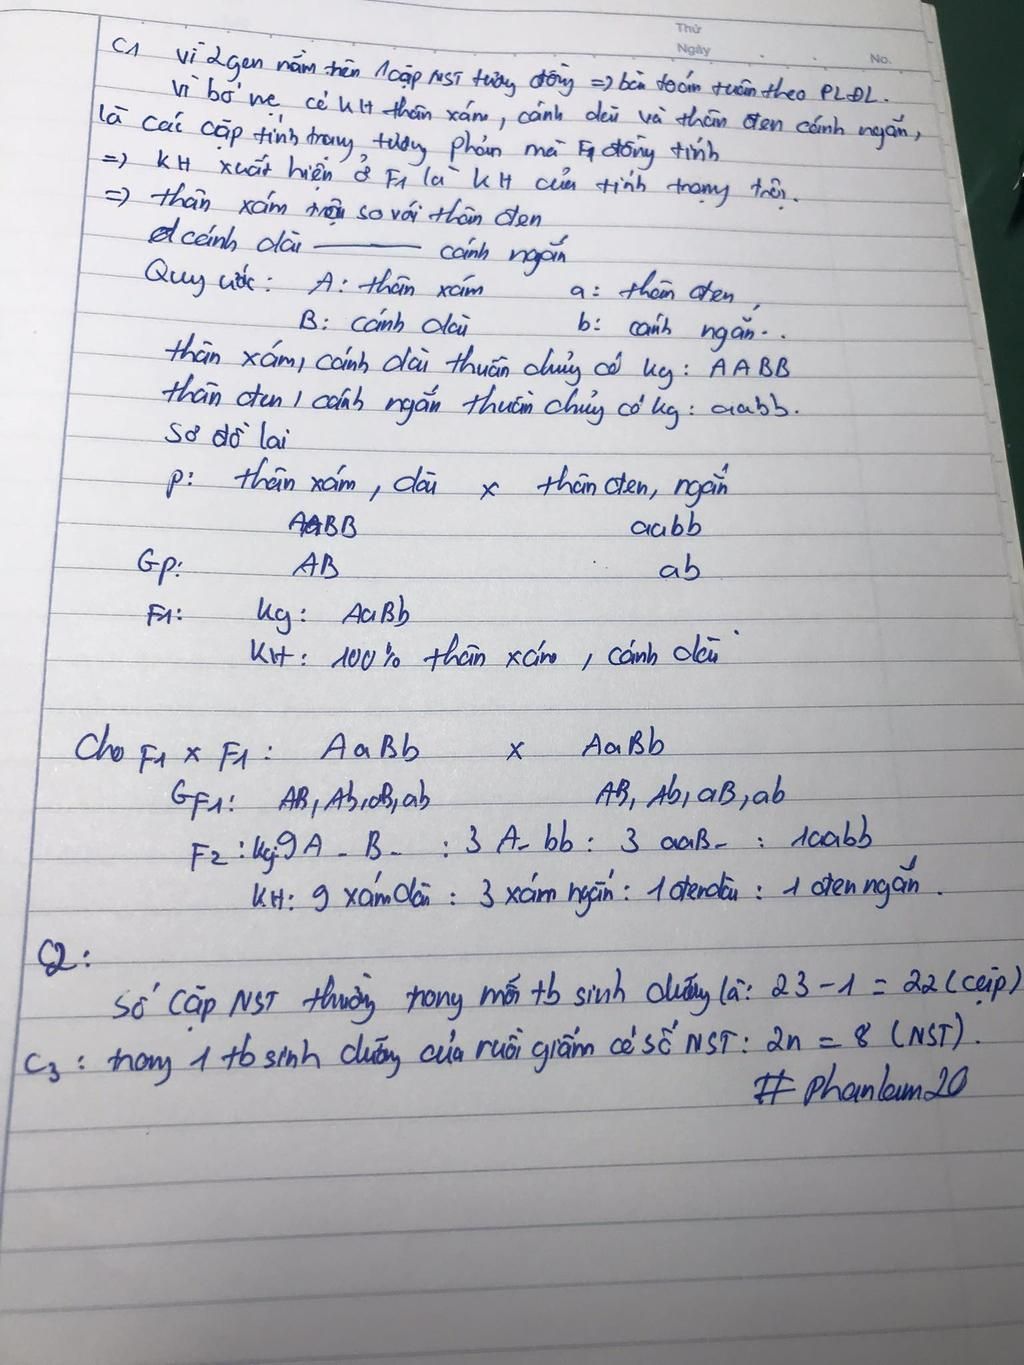 Thứ
Ngày No.
C1 vì 2 gen nằm trên 1 cặp NST tương đồng => bài toán tuân theo PLĐL.
vì bố mẹ có KH thân xám, cánh dài và thân đen cánh ngắn,
là các cặp tính trạng tương phản mà F1 đồng tính
=> KH xuất hiện ở F1 là KH của tính trạng trội.
=> thân xám trội so với thân đen
cánh dài ——— cánh ngắn
Quy ước: A: thân xám a: thân đen
B: cánh dài b: cánh ngắn.
thân xám, cánh dài thuần chủng có kg: AABB
thân đen, cánh ngắn thuần chủng có kg: aabb.
Sơ đồ lai
P: thân xám, dài x thân đen, ngắn
AABB aabb
Gp: AB ab
F1: kg: AaBb
KH: 100% thân xám, cánh dài
Cho F1 x F1: AaBb x AaBb
GF1: AB, Ab, aB, ab AB, Ab, aB, ab
F2: kg: 9A-B- : 3A-bb : 3aaB- : 1aabb
KH: 9 xám dài : 3 xám ngắn : 1 đen dài : 1 đen ngắn.
C2:
Số cặp NST thường trong mỗi tb sinh dưỡng là: 23-1 = 22 (cặp)
C3: trong 1 tb sinh dưỡng của ruồi giấm có số NST: 2n = 8 (NST).
# phanlam20